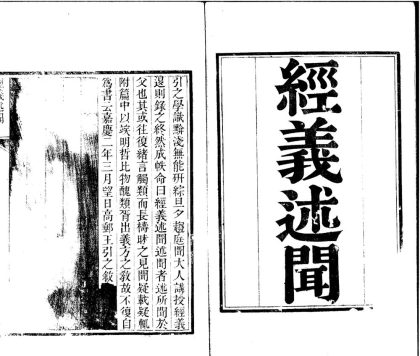 經義述聞
引之學識黭淺無能研綜旦夕趨庭聞大人講授經義
退則錄之終然成帙命曰經義述聞述聞者述所聞於
父也其或往復緒言觸類而長檮昧之見聞疑載疑輒
附篇中以竢明哲比物醜類胥出義方之敎故不復自
爲書云嘉慶二年三月望日高郵王引之敘